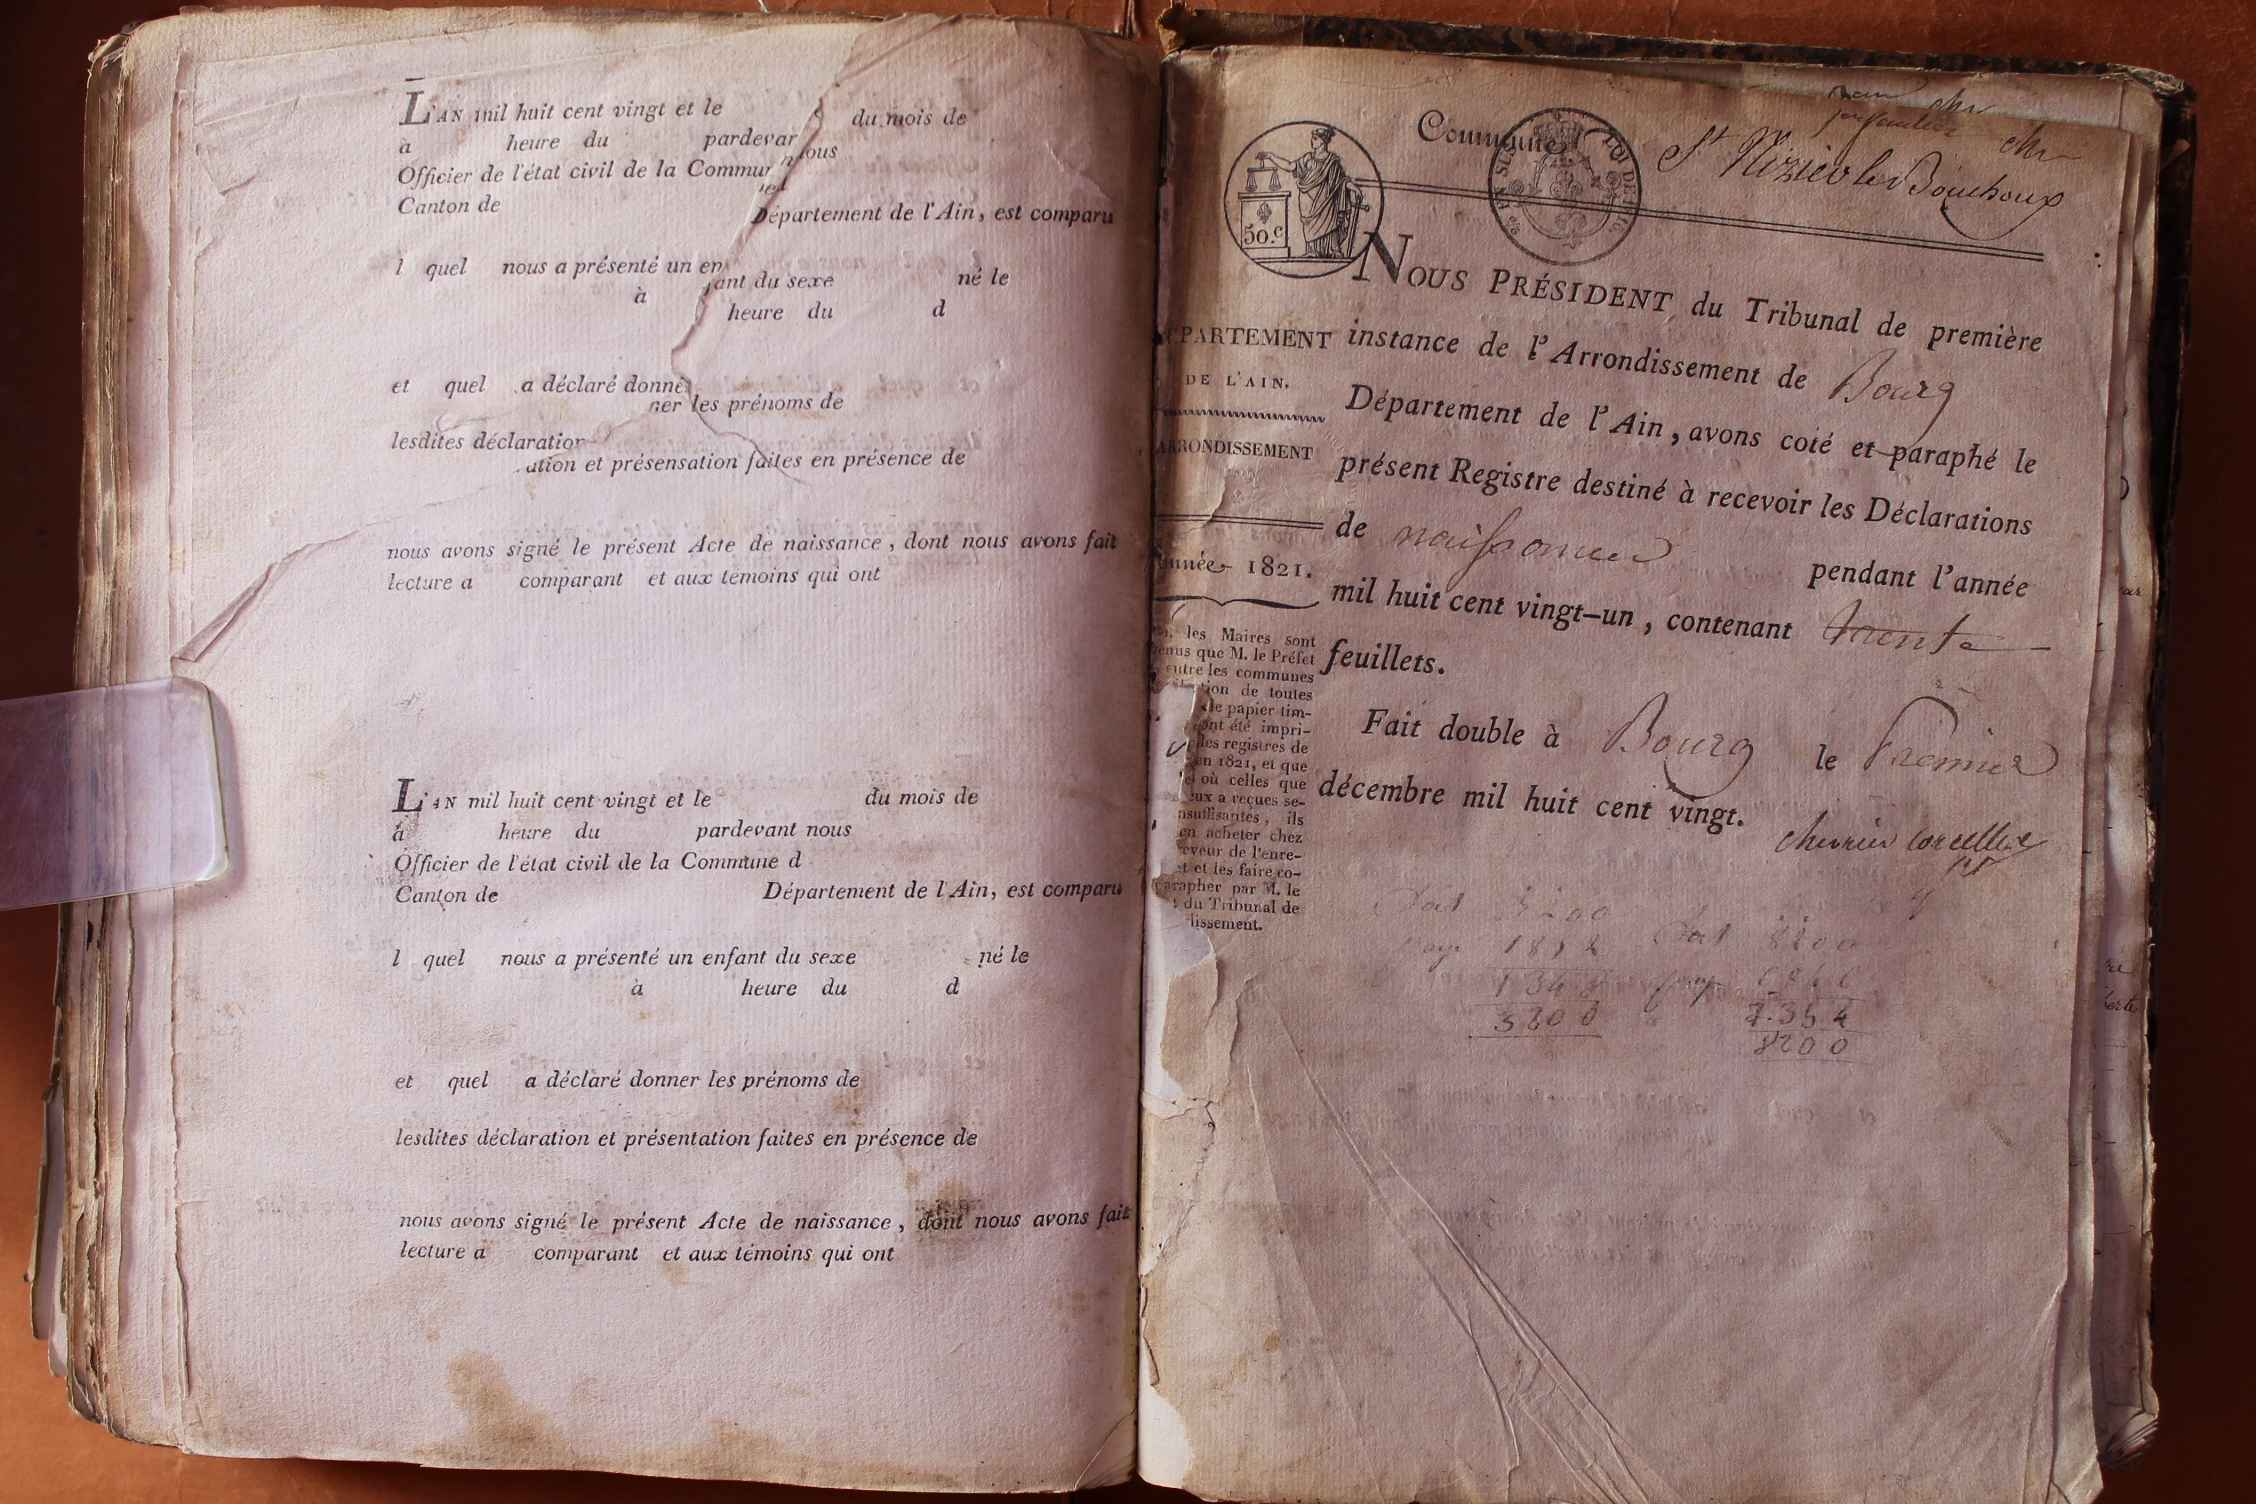 L'AN mil huit cent vingt et le du mois de
à heure du pardevar nous
Officier de l'état civil de la Commun
Canton de Département de l'Ain, est comparu
l quel nous a présenté un en fant du sexe né le
à heure du d
et quel a déclaré donne
ner les prénoms de
lesdites déclaration
ation et présensation faites en présence de
nous avons signé le présent Acte de naissance, dont nous avons fait
lecture a comparant et aux témoins qui ont
L'AN mil huit cent vingt et le du mois de
à heure du pardevant nous
Officier de l'état civil de la Commune d
Canton de Département de l'Ain, est comparu
l quel nous a présenté un enfant du sexe né le
à heure du d
et quel a déclaré donner les prénoms de
lesdites déclaration et présentation faites en présence de
nous avons signé le présent Acte de naissance, dont nous avons fait
lecture a comparant et aux témoins qui ont
Commune St Nizier le Bouchoux
50.c
NOUS PRÉSIDENT du Tribunal de première
instance de l'Arrondissement de Bourg
Département de l'Ain, avons coté et paraphé le
présent Registre destiné à recevoir les Déclarations
de naissances pendant l'année
mil huit cent vingt-un, contenant trente
feuillets.
Fait double à Bourg le Premier
décembre mil huit cent vingt.
chevrier corcelles
DÉPARTEMENT
DE L'AIN.
ARRONDISSEMENT
Année 1821.
les Maires sont
que M. le Préfet
entre les communes
tion de toutes
de papier tim-
ont été impri-
les registres de
en 1821, et que
où celles que
eux a reçues se-
insuffisantes, ils
en acheter chez
ceveur de l'enre-
et les faire co-
parapher par M. le
du Tribunal de
dissement.
3200
8200
7.354
8200